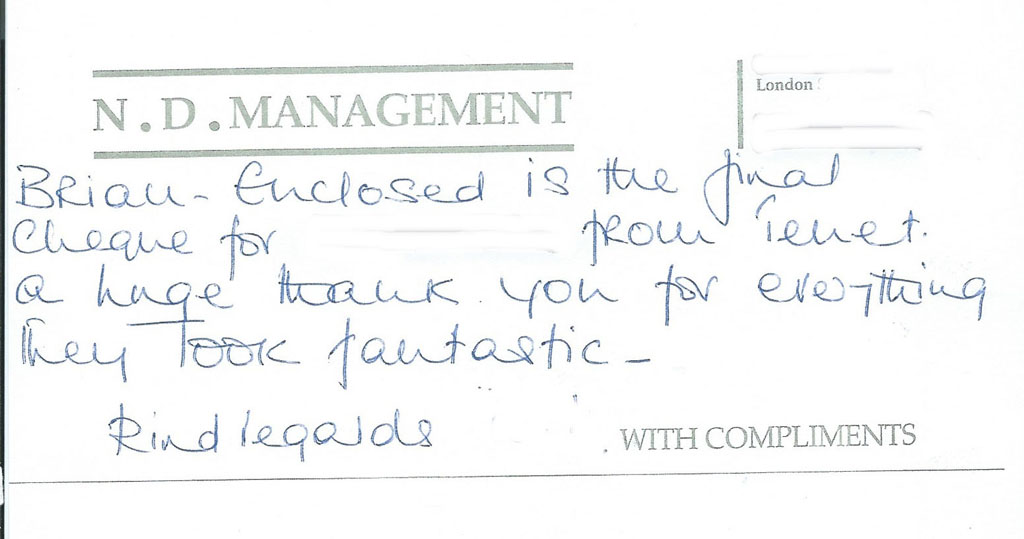 N.D. MANAGEMENT
London
Brian - Enclosed is the final
Cheque for from Tenet.
a huge thank you for everything
They look fantastic -
Kind regards
WITH COMPLIMENTS